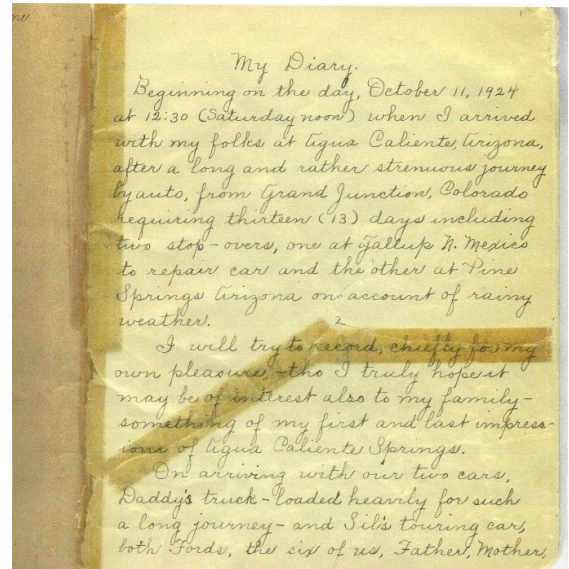 My Diary.
Beginning on the day, October 11, 1924
at 12:30 (Saturday noon) when I arrived
with my folks at Agua Caliente, Arizona,
after a long and rather strenuous journey
by auto, from Grand Junction, Colorado
requiring thirteen (13) days including
two stop-overs, one at Gallup N. Mexico
to repair car and the other at Pine
Springs Arizona on account of rainy
weather.
2
I will try to record, chiefly for my
own pleasure, -tho I truly hope it
may be of interest also to my family-
something of my first and last impress-
ions of Agua Caliente Springs.
On arriving with our two cars,
Daddy's truck - loaded heavily for such
a long journey - and Sib's touring car,
both Fords, the six of us, Father, Mother,